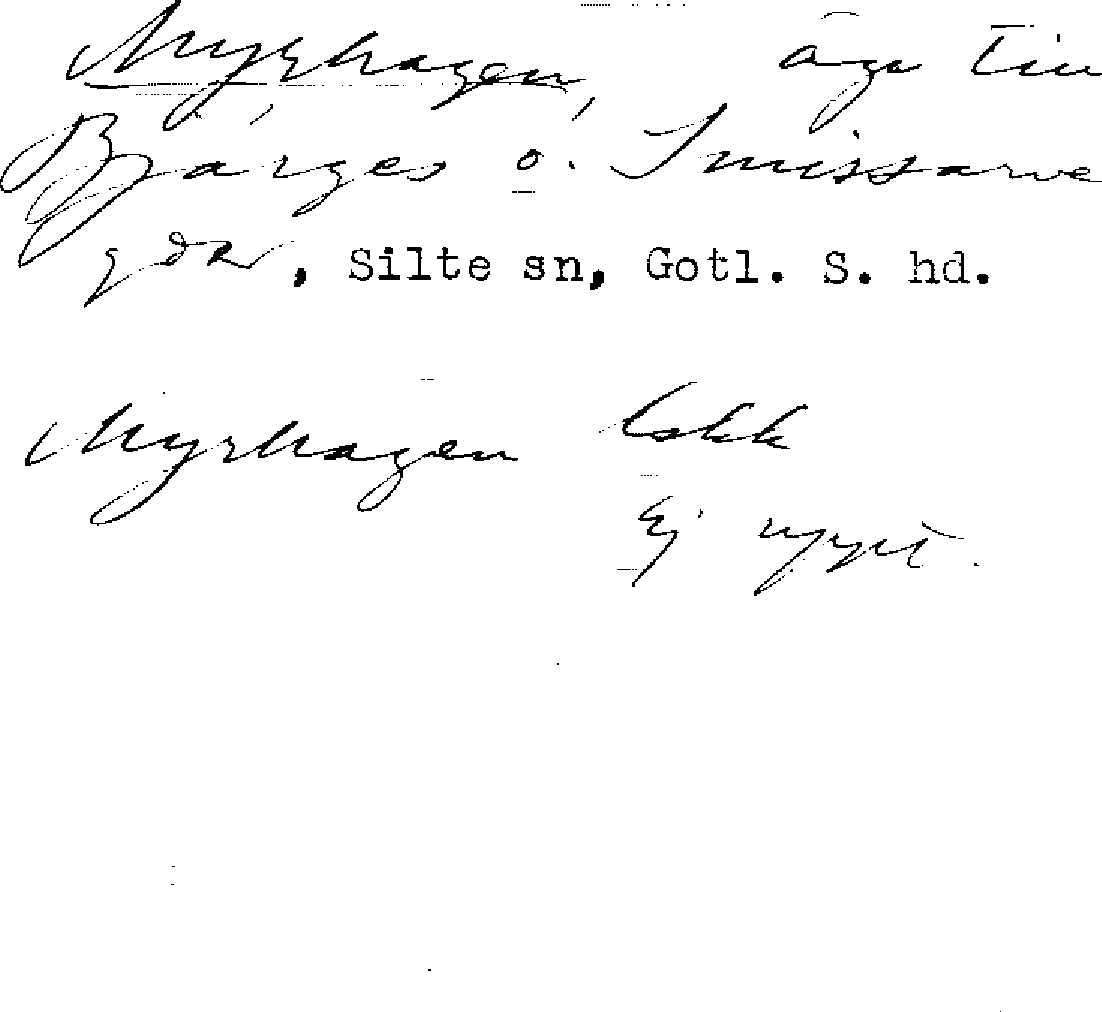 Myrhagen, äga till
Bjärges o. Smissarve
gdar, Silte sn, Gotl. S. hd.
Myrhagen Eskk
Ej uppt.